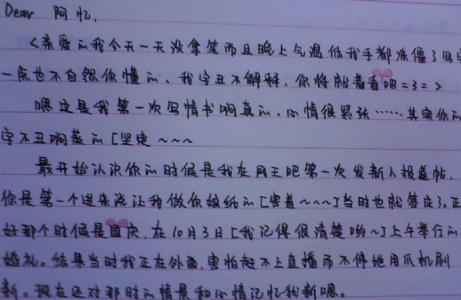 Dear 阿忆,
〈亲爱的我今天一天没拿笔而且晚上气温低我手都冻僵了写字
一点也不自然你懂的、我字丑不解释、你将就着看吧=3=>
嗯这是我第一次写情书啊真的、心情很紧张……其实你的
字不丑啊蒸的[坚定~~~
最开始认识你的时候是我在网王吧第一次发新人报道帖、
你是第一个进来说让我做你娘纸的[害羞~~~]当时也就答应了、正
好那个时候是国庆、在10月3日[我记得很清楚哟~]上午举行的
婚礼。结果当时我正在外面、害怕赶不上直播而不停地用爪机刷
新。现在还对那时的情景和心情记忆犹新嗯。